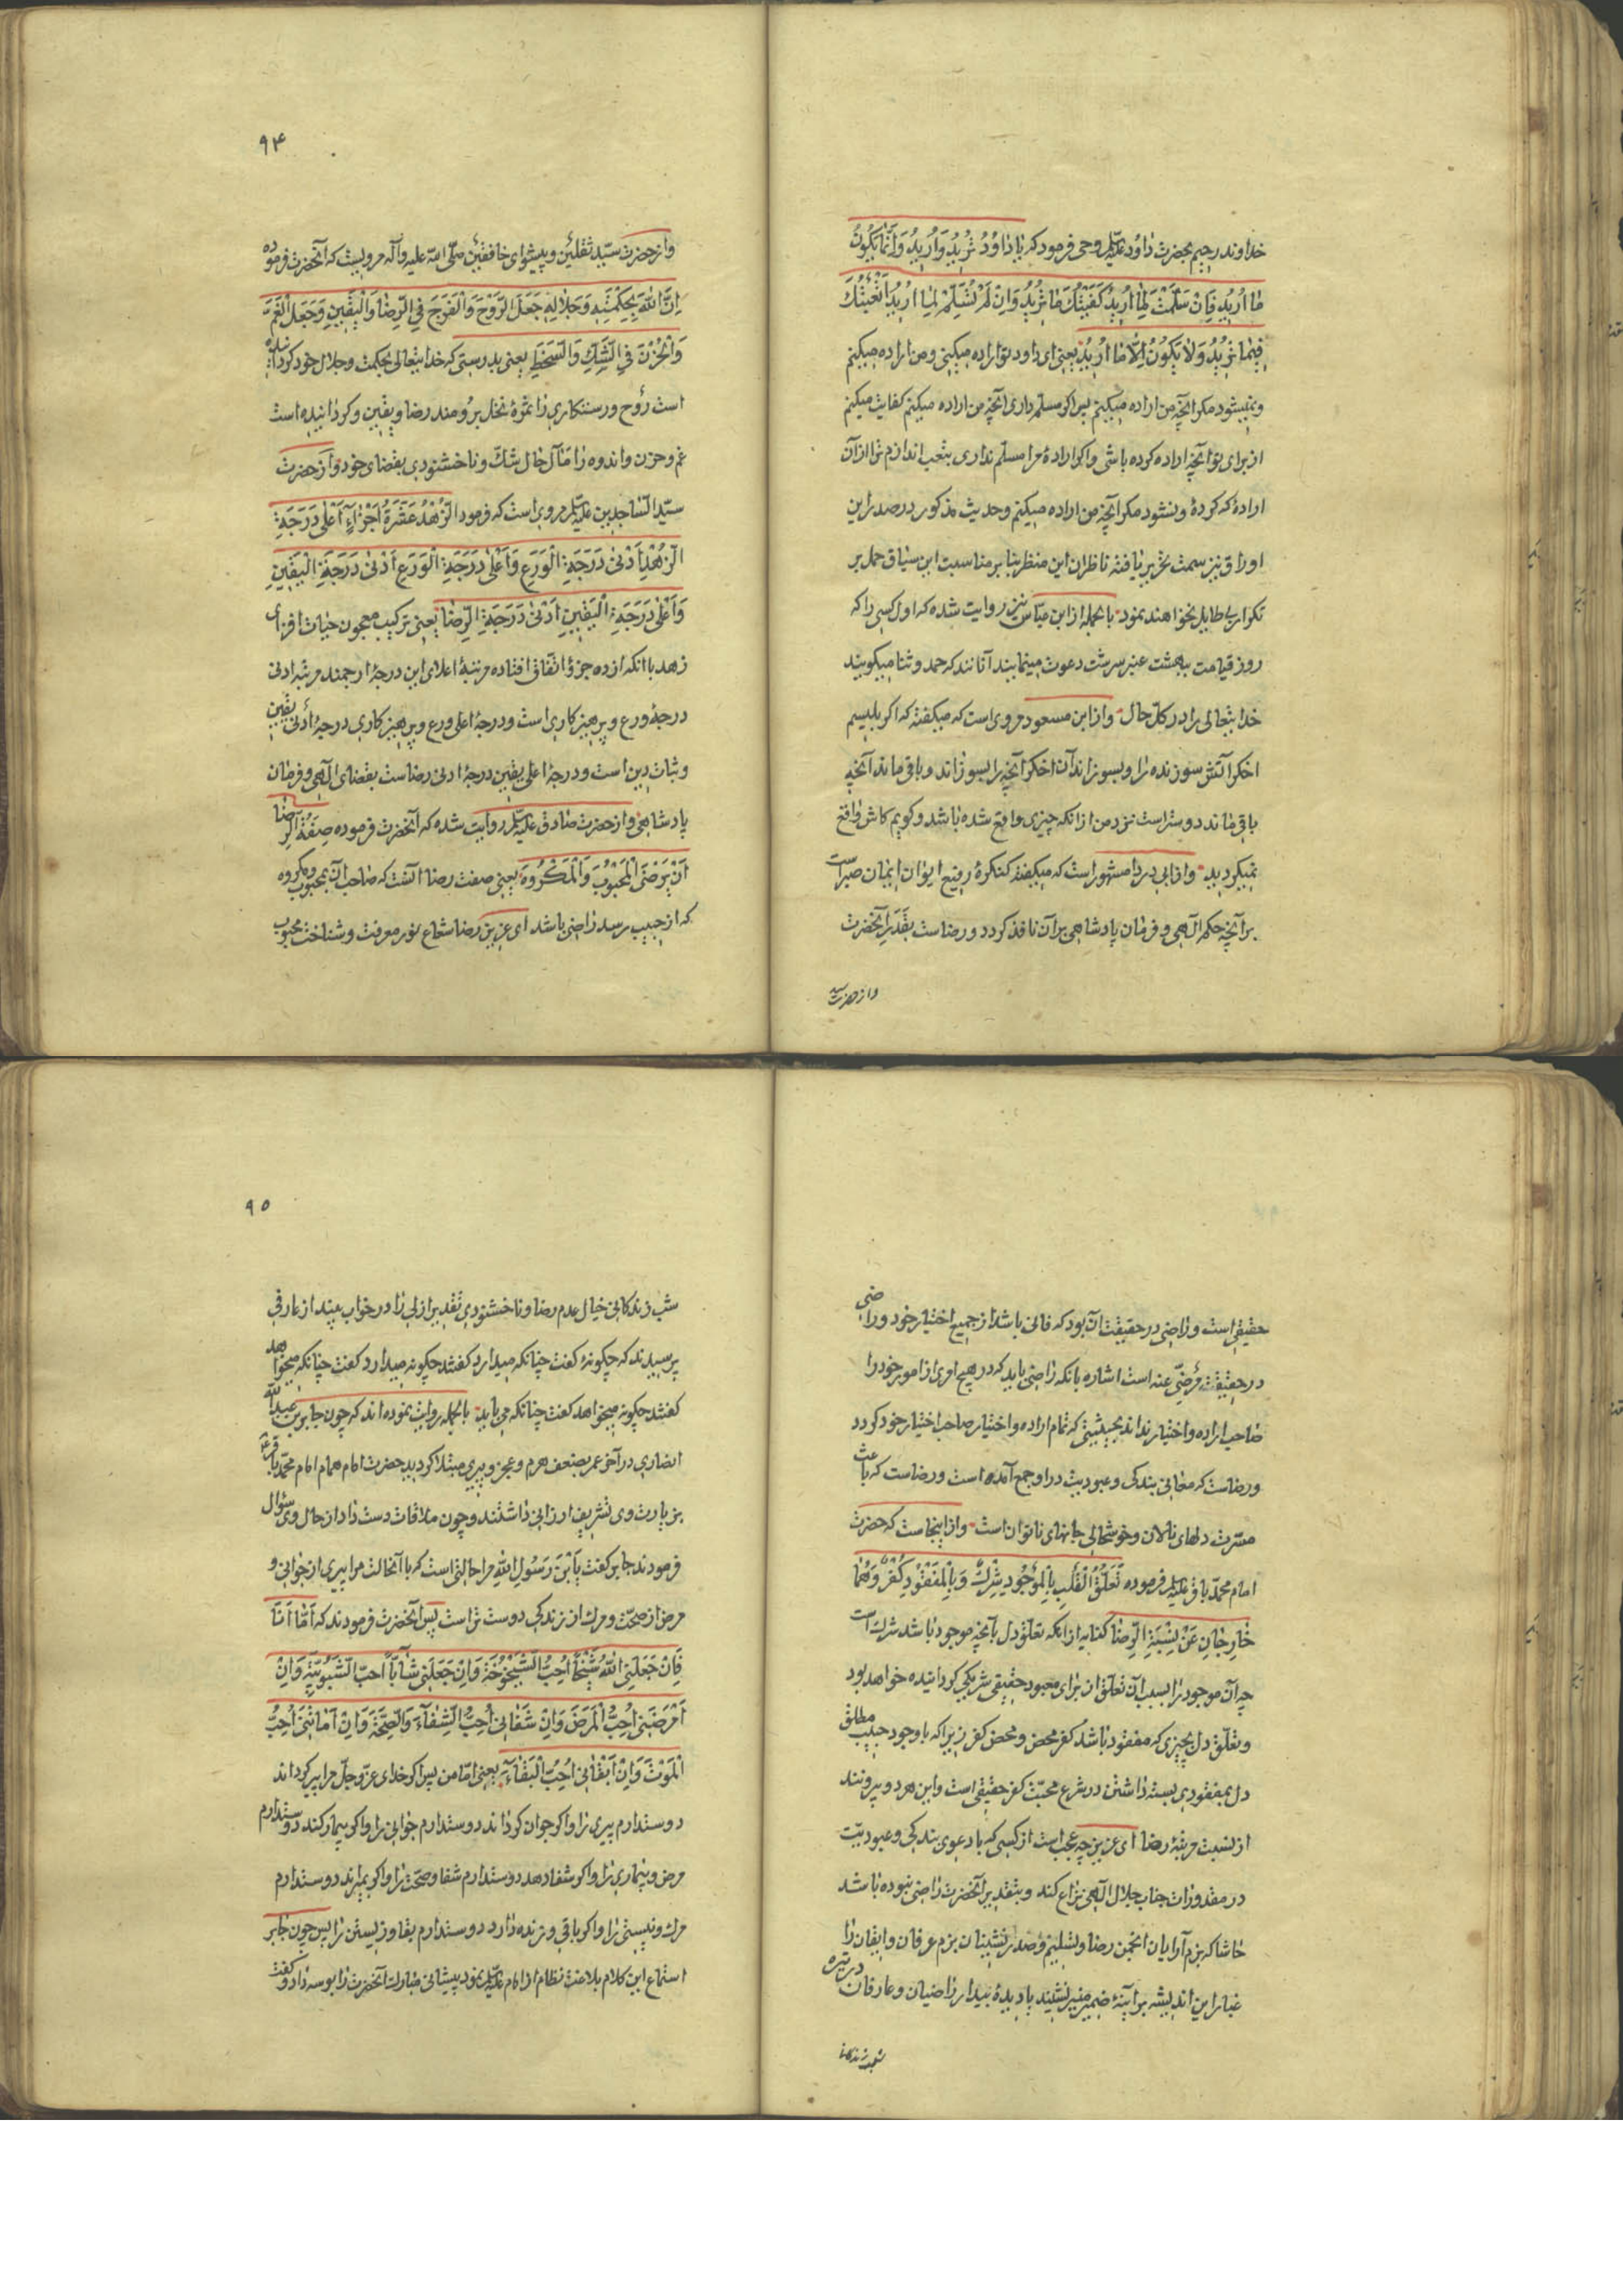 خداوند رحیم بحضرت داود علیه‌السلام وحی فرمود که یا داوُدُ تُرِیدُ وَاُرِیدُ وَاِنَّما یَکُونُ
ما اُرِیدُ فَاِنْ سَلَّمْتَ لِما اُرِیدُ کَفَیْتُكَ ما تُرِیدُ وَاِنْ لَمْ تُسَلِّمْ لِما اُرِیدُ اَتْعَبْتُكَ
فِیما تُرِیدُ وَلا یَکُونُ اِلّا ما اُرِیدُ یعنی ای داود تو اراده میکنی ومن اراده میکنم
ونمیشود مکر آنچه من اراده میکنم پس اکر مسلم داری آنچه من اراده میکنم کفایت میکنم
از برای تو آنچه اراده کرده باشی واکر ارادهٔ مرا مسلم نداری بتعب اندازم ترا از آن
ارادهٔ که کردهٔ ونشود مکر آنچه من اراده میکنم وحدیث مذکور در صدر این
اوراق نیز سمت تحریر یافته ناظران این منظر بنا بر مناسبت این سیاق حمل بر
تکرار بی طایل نخواهند نمود بالجمله از ابن عباس نیز روایت شده که اول کسی را که
روز قیامت ببهشت عنبر سرشت دعوت مینمایند آنانند که حمد وثنا میکویند
خدایتعالی را در کل حال وازابن مسعود مرویست که میکفته که اکر بلیسم
اخکر آتش سوزنده را وبسوزاند آن اخکر آنچه را بسوزاند وباقی ماند آنچه
باقی ماند دوستر است نزد من از آنکه چیزی واقع شده باشد وکویم کاش واقع
نمیکردید وازابی دردا مشهور است که میکفته کنکرهٔ رفیع ایوان ایمان صبر است
بر آنچه حکم آلهی وفرمان پادشاهی بر آن نافذ کردد ورضاست بقدر آنحضرت
وازحضرت سید
۹۴
وازحضرت سیّد ثقلین وپیشوای خافقین صلّی الله علیه وآله مرویست که آنحضرت فرموده
اِنَّ اللهَ بِحِکْمَتِهِ وَجَلالِهِ جَعَلَ الرَّوْحَ وَالْفَرَجَ فِی الرِّضا وَالْیَقِینِ وَجَعَلَ الْغَمَّ
وَالْحُزْنَ فِی الشَّكِّ وَالسَّخَطِ یعنی بدرستی که خدایتعالی بحکمت وجلال خود کردانیده
است رَوح ورستکاری را ثمرهٔ نخل برومند رضا ویقین وکردانیده است
غم وحزن واندوه را مآل حال شكّ وناخشنودی بقضای خود وازحضرت
سیّد السّاجدین علیه‌السلام مرویست که فرمود الزُّهْدُ عَشَرَةُ اَجْزاءٍ اَعْلی دَرَجَةِ
الزُّهْدِ اَدْنی دَرَجَةِ الْوَرَعِ وَاَعْلی دَرَجَةِ الْوَرَعِ اَدْنی دَرَجَةِ الْیَقِینِ
وَاَعْلی دَرَجَةِ الْیَقِینِ اَدْنی دَرَجَةِ الرِّضا یعنی ترکیب معجون حیات افزای
زهد با آنکه از ده جزؤ اتّفاق افتاده مرتبهٔ اعلای این درجهٔ ارجمند مرتبه ادنی
درجهٔ ورع وپرهیزکاری است ودرجهٔ اعلی ورع وپرهیزکاری درجهٔ ادنی یقین
وثبات دین است ودرجهٔ اعلی یقین درجهٔ ادنی رضاست بقضای آلهی وفرمان
پادشاهی وازحضرت صادق علیه‌السلام روایت شده که آنحضرت فرموده صِفَةُ الرِّضا
اَنْ یَرْضَی الْمَحْبُوبَ وَالْمَکْرُوهَ یعنی صفت رضا آنست که صاحب آن بمحبوب ومکروه
که از حبیب رسد راضی باشد ای عزیز رضا شعاع نور معرفت وشناخت محبوب
حقیقی است وراضی در حقیقت آن بود که فانی باشد از جمیع اختیار خود وراضی
در حقیقت مَرضیّ عنه است اشاره بآنکه راضی باید که در هیچ امری از امور خود را
صاحب اراده واختیار نداند بحیثیتی که تمام اراده واختیار صاحب اختیار خود کردد
ورضاست که معانی بندکی وعبودیت در او جمع آمده است ورضاست که باعث
مسرّت دلهای نالان وخوشحالی جانهای ناتوان است وازاینجاست که حضرت
امام محمّد باقر علیه‌السلام فرموده تَعَلُّقُ الْقَلْبِ بِالْمَوْجُودِ شِرْكٌ وَبِالْمَفْقُودِ کُفْرٌ وَهُما
خارِجانِ عَنْ نِسْبَةِ الرِّضا کنایه از آنکه تعلّق دل بآنچه موجود باشد شرك است
چه آن موجود را بسبب آن تعلّق از برای معبود حقیقی شریکی کردانیده خواهد بود
وتعلّق دل بچیزی که مفقود باشد کفر محض ومحض کفر زیرا که باوجود حبیب مطلق
دل بمفقودی بسته داشتن در شرع محبّت کفر حقیقی است واین هر دو بیرونند
از نسبت مرتبهٔ رضا ای عزیز چه عجب است از کسی که با دعوی بندکی وعبودیّت
در مقدورات جناب جلال آلهی نزاع کند وبتقدیر آنحضرت راضی نبوده باشد
حاشا که بزم آرایان انجمن رضا وتسلیم وصدر نشینان بزم عرفان وایقان را
غبار این اندیشه بر آینهٔ ضمیر منیر نشیند یا دیدهٔ بیدار راضیان وعارفان در تیره
شب زندکانی
۹۵
شب زندکانی خیال عدم رضا وناخشنودی تقدیر ازلی را در خواب بیند از عارفی
پرسیدند که چکونهٔ کفت چنانکه میدارد کفتند چکونه میدارد کفت چنانکه میخواهد
کفتند چکونه میخواهد کفت چنانکه می باید بالجمله روایت نموده اند که چون جابر بن عبدالله
انصاری در آخر عمر بضعف هرم وعجز وپیری مبتلا کردید حضرت امام همام امام محمّد باقر
بزیارت وی تشریف ارزانی داشتند وچون ملاقات دست داد از حال وی سؤال
فرمودند جابر کفت یَابْنَ رَسُولِ اللهِ مرا حالتی است که با آنحالت مرا پیری از جوانی و
مرض از صحّت ومرك از زندکی دوست تر است پس آنحضرت فرمودند که اَمّا اَنَا
فَاِنْ جَعَلَنِیَ اللهُ شَیْخاً اُحِبُّ الشَّیْخُوخَةَ وَاِنْ جَعَلَنِی شابّاً اُحِبُّ الشَّبُوبِیَّةَ وَاِنْ
اَمْرَضَنِی اُحِبُّ الْمَرَضَ وَاِنْ شَفانِی اُحِبُّ الشِّفاءَ وَالصِّحَّةَ وَاِنْ اَماتَنِی اُحِبُّ
الْمَوْتَ وَاِنْ اَبْقانِی اُحِبُّ الْبَقاءَ یعنی امّا من پس اکر خدای عزّ وجلّ مرا پیر کرداند
دوستدارم پیری را واکر جوان کرداند دوستدارم جوانی را واکر بیمار کند دوستدارم
مرض وبیماری را واکر شفا دهد دوستدارم شفا وصحّت را واکر بمیراند دوستدارم
مرك ونیستی را واکر باقی وزنده دارد دوستدارم بقا وزیستن را پس چون جابر
استماع این کلام بلاغت نظام از امام علیه‌السلام نمود پیشانی مبارك آنحضرت را بوسه داد وکفت